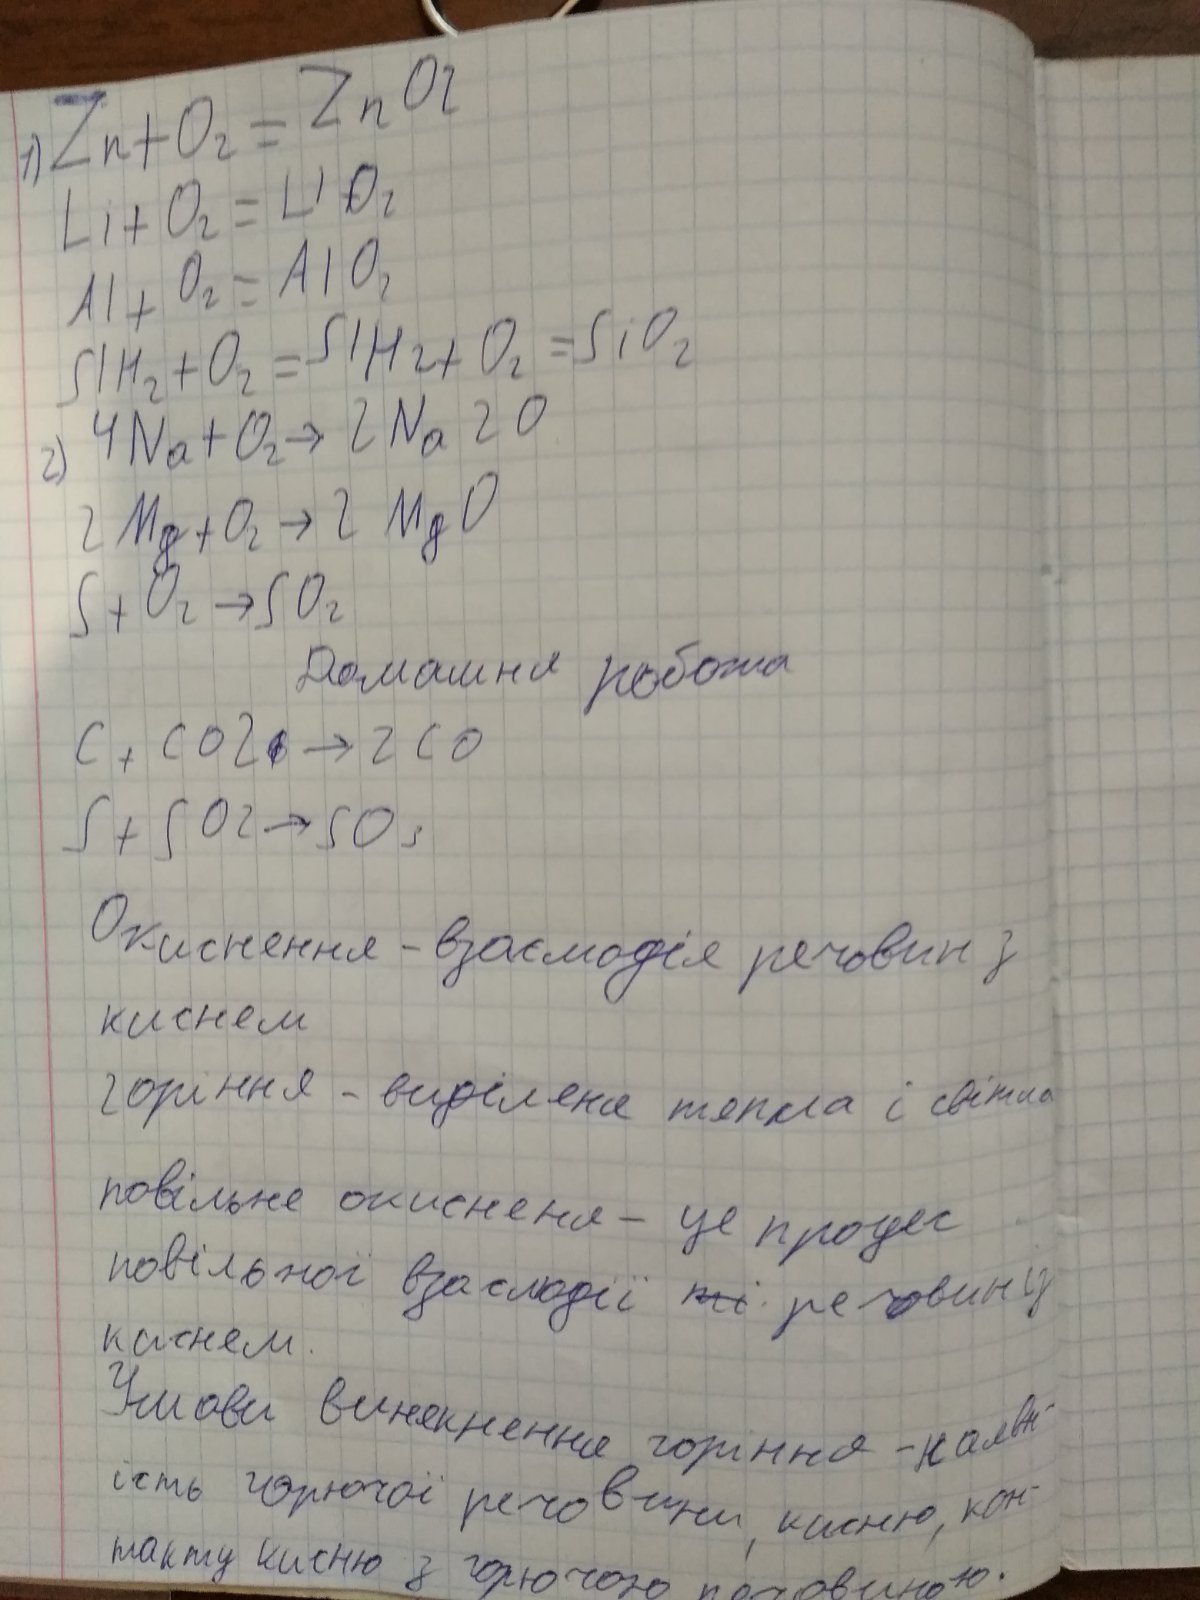 1) Zn+O2 = ZnO2
Li+O2 = LiO2
Al+O2 = AlO2
SiH2+O2 = SiH2+O2 = SiO2
2) 4Na+O2→2Na2O
2Mg+O2→2MgO
S+O2→SO2
Домашня робота
C+CO2→2CO
S+SO2→SO3
Окиснення – взаємодія речовин з
киснем
горіння – виділеня тепла і світла
повільне окисненя – це процес
повільної взаємодії речовин із
киснем.
Умови виникнення горіння – наявн-
ість горючої речовини, кисню, кон-
такту кисню з горючою речовиною.